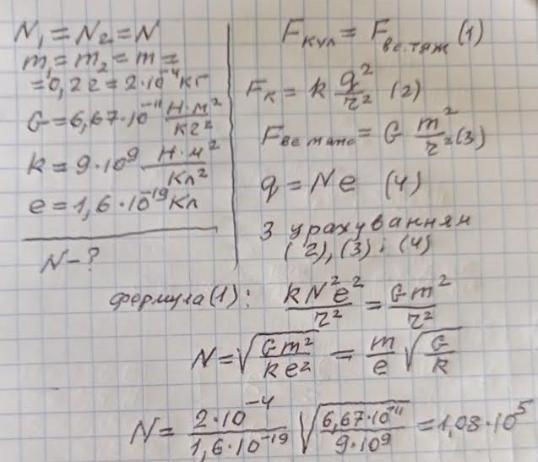 N₁ = N₂ = N
m₁ = m₂ = m =
= 0,2 г = 2·10⁻⁴ кг
G = 6,67·10⁻¹¹ Н·м²/кг²
k = 9·10⁹ Н·м²/Кл²
e = 1,6·10⁻¹⁹ Кл
N - ?
Fкул = Fвс.тяж (1)
Fк = k q²/r² (2)
F = G m²/r² (3)
q = Ne (4)
З урахуванням
(2), (3) і (4)
формула (1): kN²e²/r² = Gm²/r²
N = √(Gm²/ke²) = m/e √(G/k)
N = 2·10⁻⁴/1,6·10⁻¹⁹ √(6,67·10⁻¹¹/9·10⁹) = 1,08·10⁵